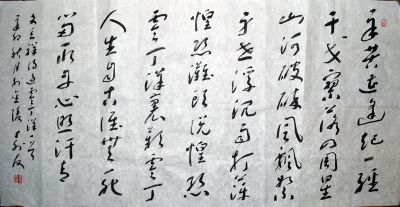 辛苦遭逢起一經
干戈寥落四周星
山河破碎風飄絮
身世浮沉雨打萍
惶恐灘頭說惶恐
零丁洋裏歎零丁
人生自古誰無死
留取丹心照汗青
文天祥詩過零丁洋一首
辛卯秋月於金陵